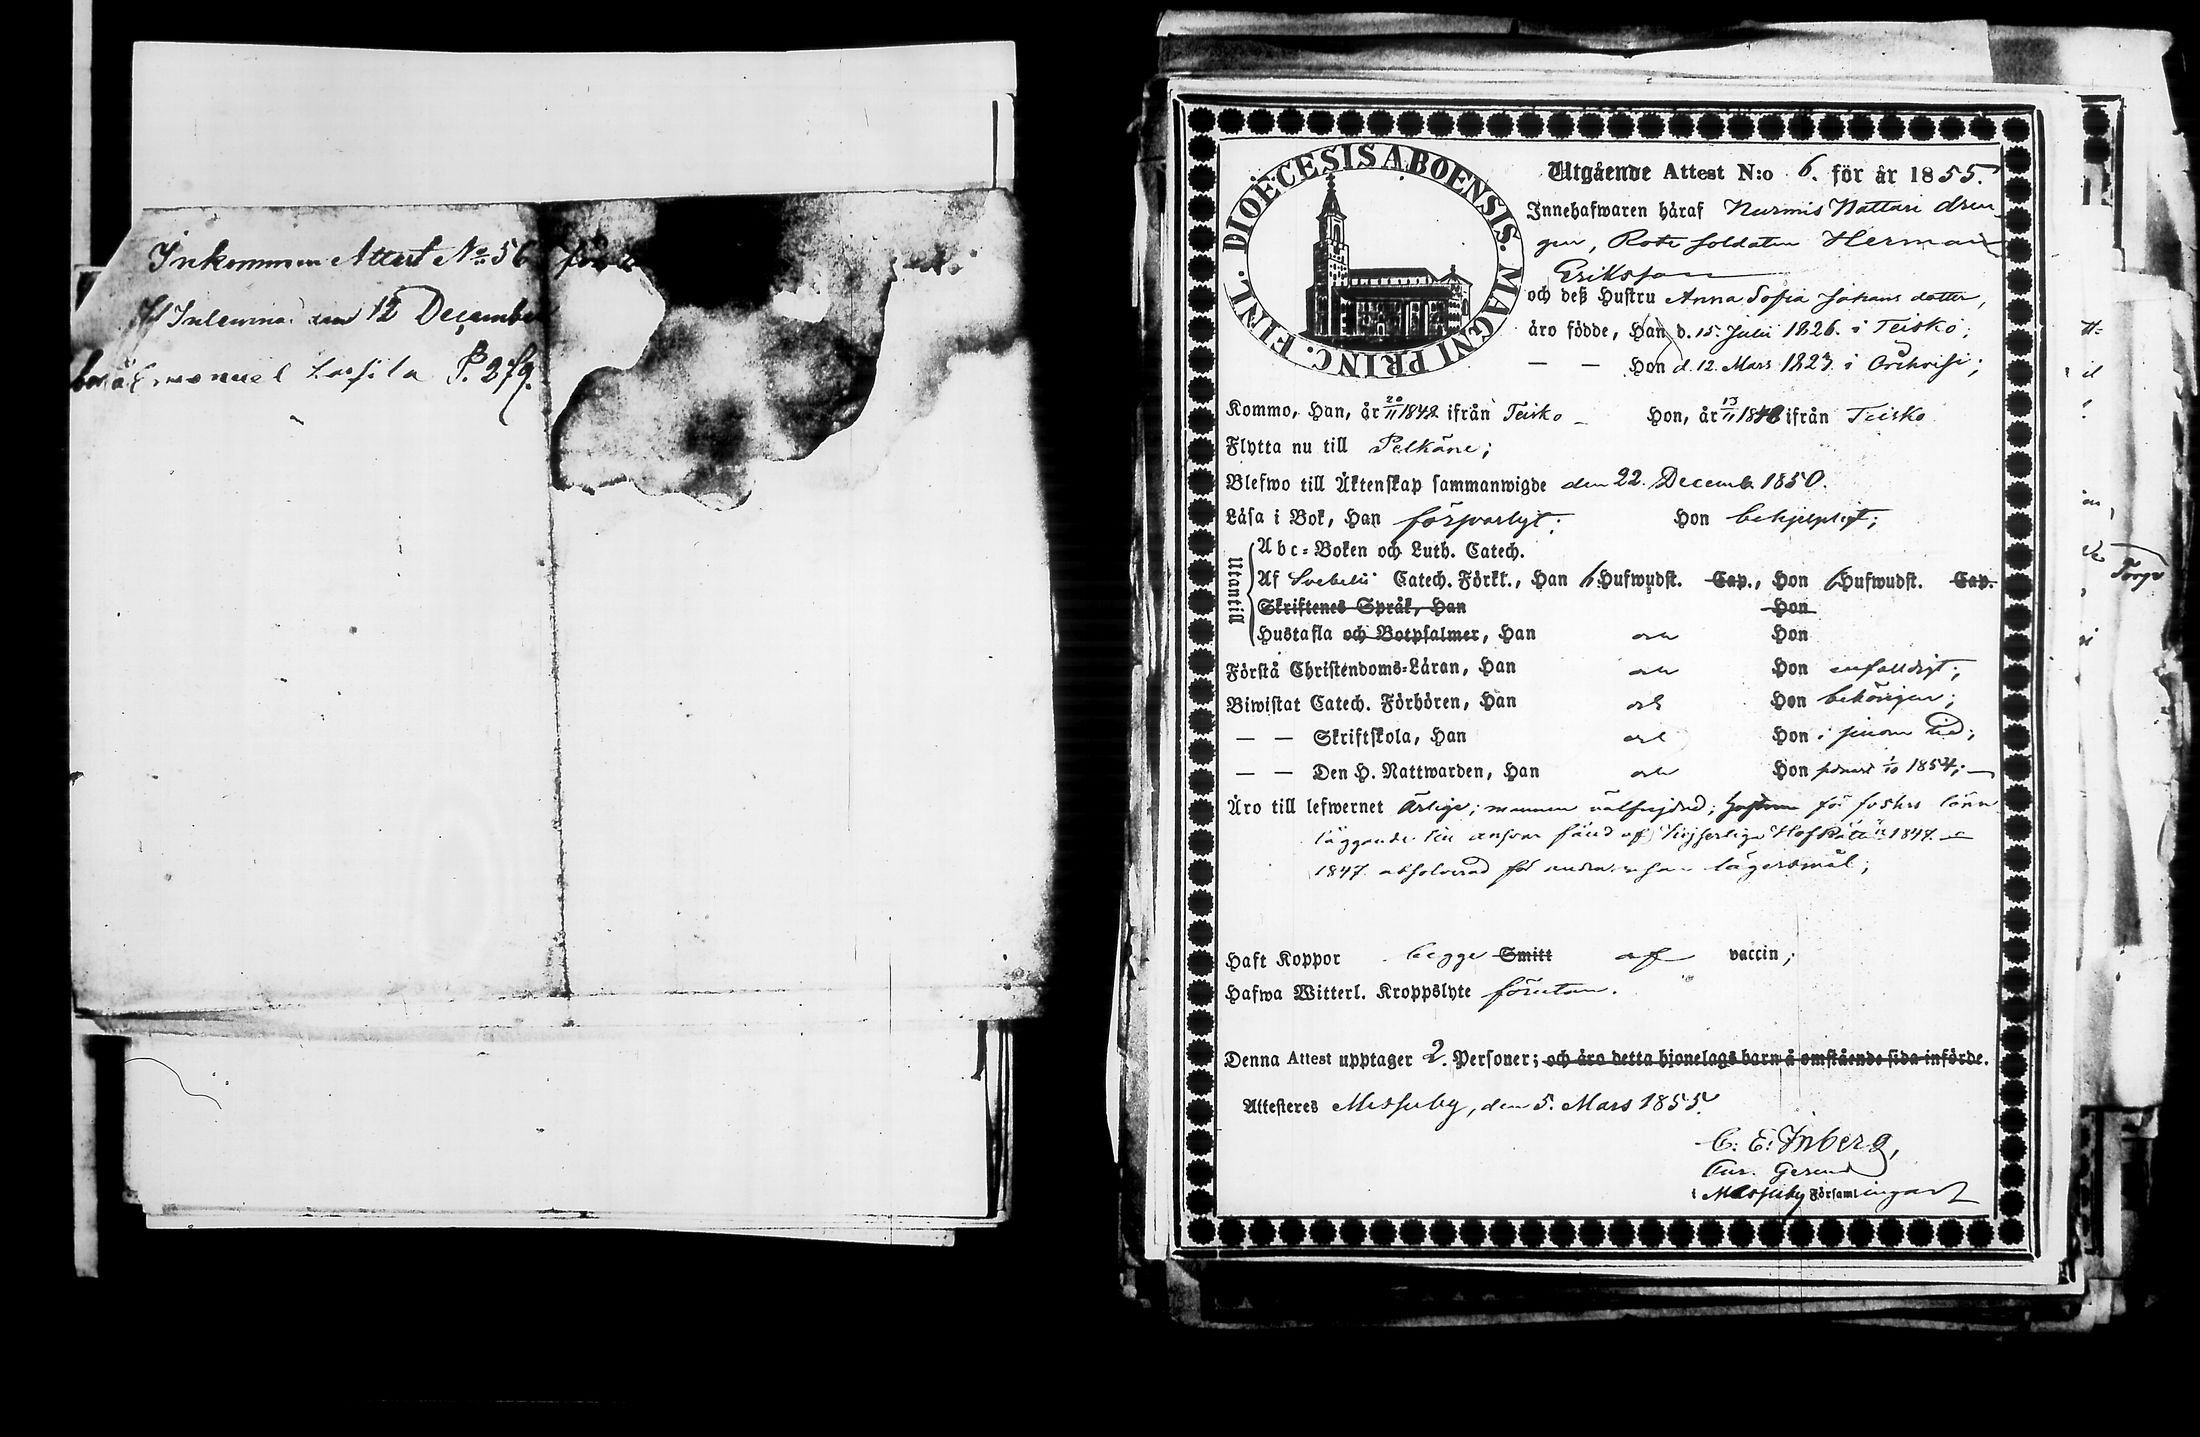 Inkommen Attest No. 56 för
Inlemna: den 12 December
P. 279.
DIOECESIS ABOENSIS. MAGNI PRINC. FINL.
Utgående Attest N:o 6. för år 1855.
Innehafwaren häraf Nurmis Nattari dren-
gen, Rote soldaten Herman
Eriksson
och deß Hustru Anna Sofia Johans dotter,
äro födde, Han d. 15. Julii 1826. i Teisko;
— — Hon d. 12. Mars 1823. i Orihvesi;
Kommo, Han, år 20/11 1842 ifrån Teisko — Hon, år 13/11 1848 ifrån Teisko
Flytta nu till Pelkäne;
Blefwo till Äktenskap sammanwigde den 22. Decemb. 1850.
Läsa i Bok, Han försvarligt; Hon behjelpligt;
Utantill
Abc-Boken och Luth. Catech.
Af Svebelii Catech. Förkl., Han 6 Hufwudst. Cap., Hon 6 Hufwudst. Cap.
Skriftenes Språk, Han Hon
Hustafla och Botpsalmer, Han och Hon
Förstå Christendoms-Läran, Han och Hon enfaldigt;
Biwistat Catech. Förhören, Han och Hon behörigen;
— — Skriftskola, Han och Hon i sinom tid;
— — Den H. Nattwarden, Han och Hon senast 1/10 1854; —
Äro till lefwernet ärlige; mannen välfrejdad; hustrun för fosters lönn
läggande till ansvar fäld af Kejserliga Hof Rätten 1847. o
1847 absolverad för andra resan lägersmål;
Haft Koppor begge Smitt af vaccin;
Hafwa Witterl. Kroppslyte förutan.
Denna Attest upptager 2. Personer; och äro detta hjonelags barn å omstående sida införde.
Attesteras Messuby, den 5. Mars 1855.
C. E. Inberg,
Cur. Gerend
i Messuby Församlingar